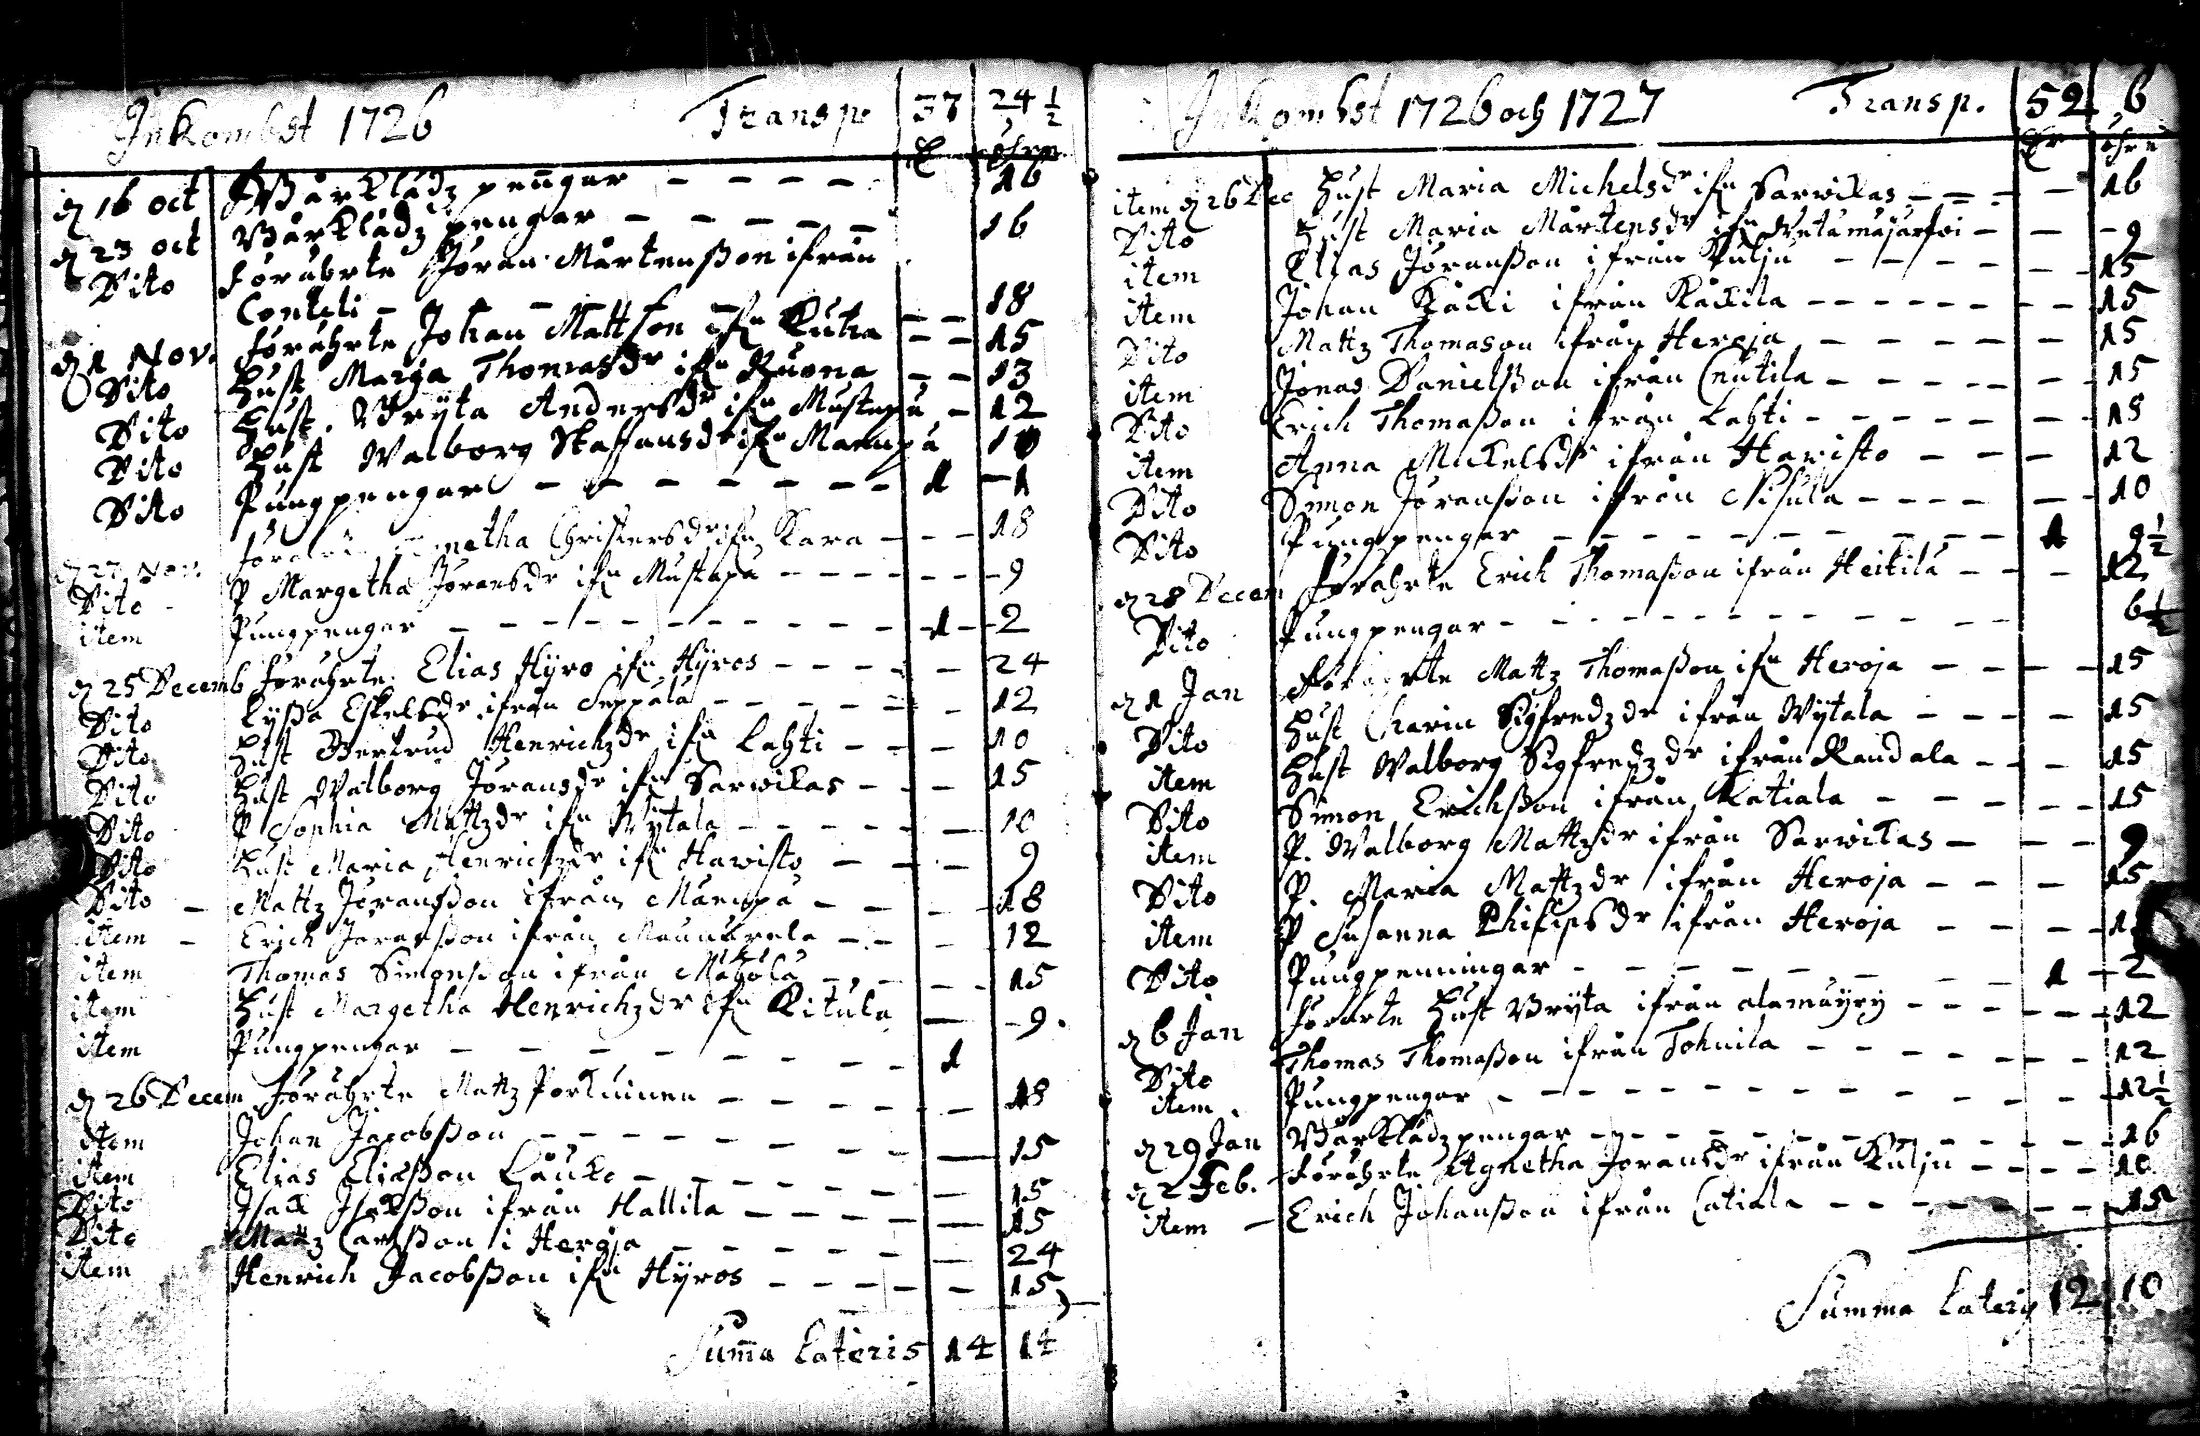 Inkombst 1726 Transp. 37 24 1/2
Dr öhre
d 16 oct Bårklädz pengar - - - - 16
d 23 oct Bårklädz pengar - - - - 16
Dito Förährte Jöran Mårtenßon ifrån
Conteli - - - - 18
d 1 Nov. Förährte Johan Mattson ifn Kuha - - 15
Dito Hust Marja Thomasdr ifn Ruona - - 13
Dito Hust. Bryta Andersdr ifn Mustapä - 12
Dito Hust Walborg Staffansdr ifn Mannpä 10
Dito Pungpengar - - - - - - - 1 - 1
d 27 Nov. Christersdr ifn Kara - - - 18
Dito P Margetha Jöransdr ifn Mustapä - - - - - - 9
item Pungpengar - - - - - - - - - - 1 - 2
d 25 Decemb Förährte Elias Hÿro ifn Hÿros - - - - - 24
Dito Lÿßa Eskelsdr ifrån Seppälä - - - - - - 12
Dito Hust Bertrud Henrichzdr ifn Lahti - - - 10
Dito Hust Walborg Jöransdr ifn Sarwikas - - - 15
Dito P Sophia Mattzdr ifn Wÿtala - - - - - - 10
Dito Hust Maria Henrichzdr ifn Hawisto - - - 9
Dito - Mattz Jöranßon ifrån Mannpä - - - 18
item - Erich Jöranßon ifrån - - - 12
item Thomas Simonßon ifrån - - - 15
item Hust Margetha Henrichzdr ifn Ritula - - 9.
item Pungpengar - - - - - - - 1
d 26 Decem Förährte Mattz Porkuinen - - - - - - 18
item Johan Jacobßon - - - - - - - 15
item Elias Eliaßon Låuko - - - - - - 15
Dito Isack Isackßon ifrån Hallila - - - - - 15
Dito Mattz Carlßon i Heroja - - - - - - 24
item Henrich Jacobßon ifn Hÿros - - - - - 15
Suma Lateris 14 14
Inkombst 1726 och 1727 Transp. 52 6
Dr öhre
item d 26 Dec Hust Maria Michelsdr ifn Sarwikas - - - - 16
Dito Hust Maria Mårtensdr ifn - - 9
item Elias Jöranßon ifrån Kulju - - - - - 15
item Johan Käcki ifrån Käckila - - - - - - - 15
Dito Mattz Thomason ifrån Heroja - - - - - 15
item Jonas Danielßon ifrån Cnutila - - - - - 15
Dito Erich Thomaßon ifrån Lahti - - - - - - 15
item Anna Mickelsdr ifrån Hawisto - - - 12
Dito Simon Jöranßon ifrån Nisula - - - - - 10
Dito Pungpengar - - - - - - - - 1 9 1/2
d 28 Decem Förährte Erich Thomaßon ifrån Heikilä - - - 12
Dito Pungpengar - - - - - - - - - 6 1/2
d 1 Jan Förährte Mattz Thomaßon ifn Heroja - - - - 15
Dito Hust Charin Sigfredzdr ifrån Wÿtala - - - - 15
item Hust Walborg Sigfredzdr ifrån Randala - - - 15
Dito Simon Erichßon ifrån Katiala - - - - - 15
item P. Walborg Mattzdr ifrån Sarwikas - - - 9
Dito P. Maria Mattzdr ifrån Heroja - - - 15
item P Susanna Philipsdr ifrån Heroja - - - -
Dito Pungpenningar - - - - - - - 1 - 2
d 6 Jan Förärte Hust Bryta ifrån alamäÿrÿ - - - - - 12
Dito Thomas Thomaßon ifrån Tohnila - - - - - - 12
item Pungpengar - - - - - - - - - - 12 1/2
d 29 Jan Bårklädzpengar - - - - - - - - 16
d 2 Feb. Förährte Agnetha Jöransdr ifrån Kulju - - - - 10
item - Erich Johanßon ifrån Catiala - - - - - - 15
Summa Lateris 12 10